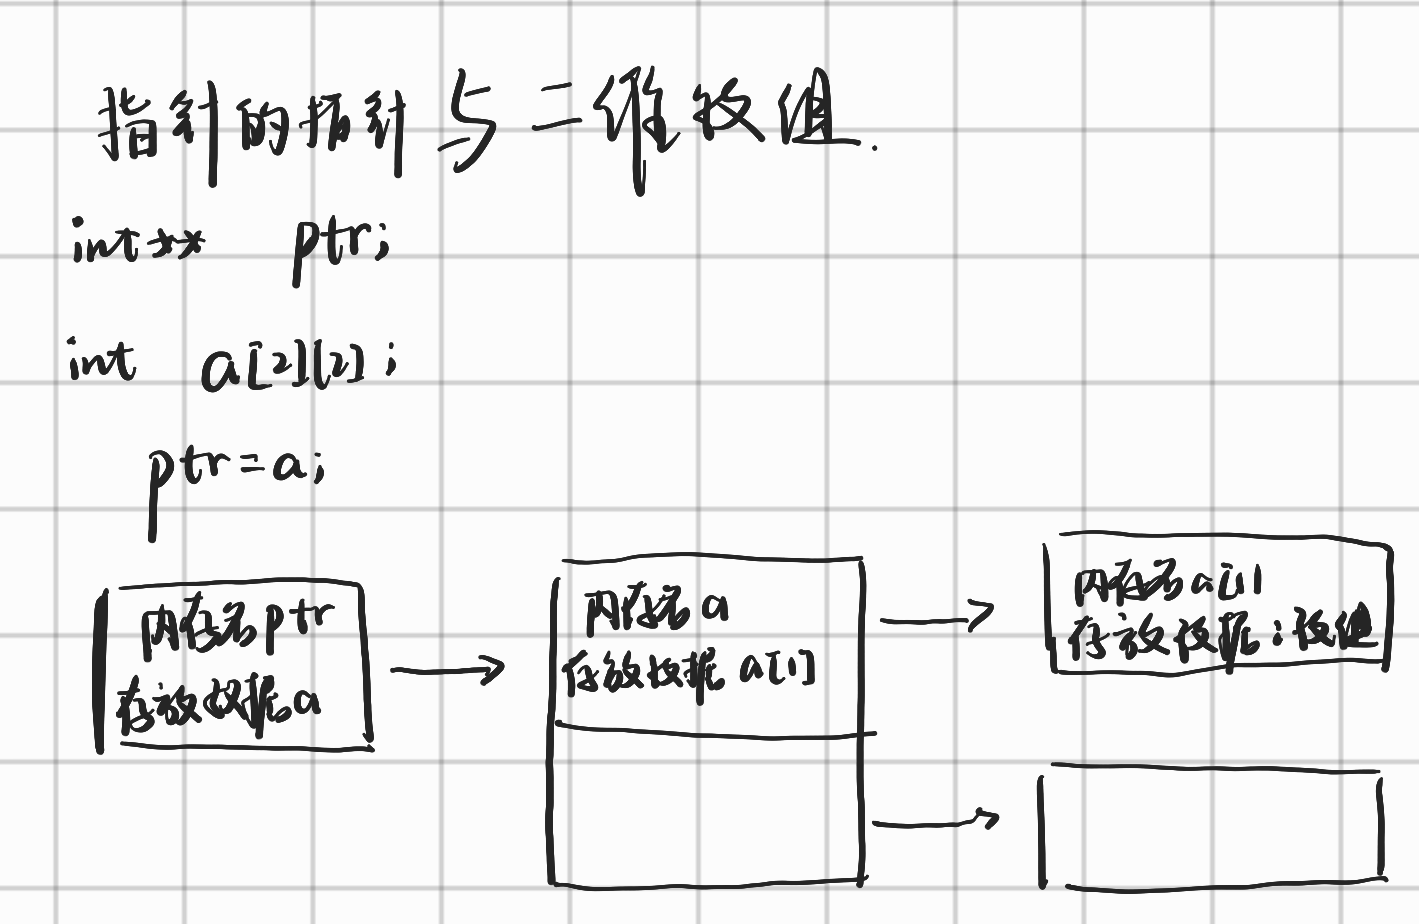 指针的指针与二维数组.
int** ptr;
int a[2][2];
ptr=a;
内存名ptr
存放数据a
内存名a
存放数据a[1]
内存名a[1]
存放数据:数值